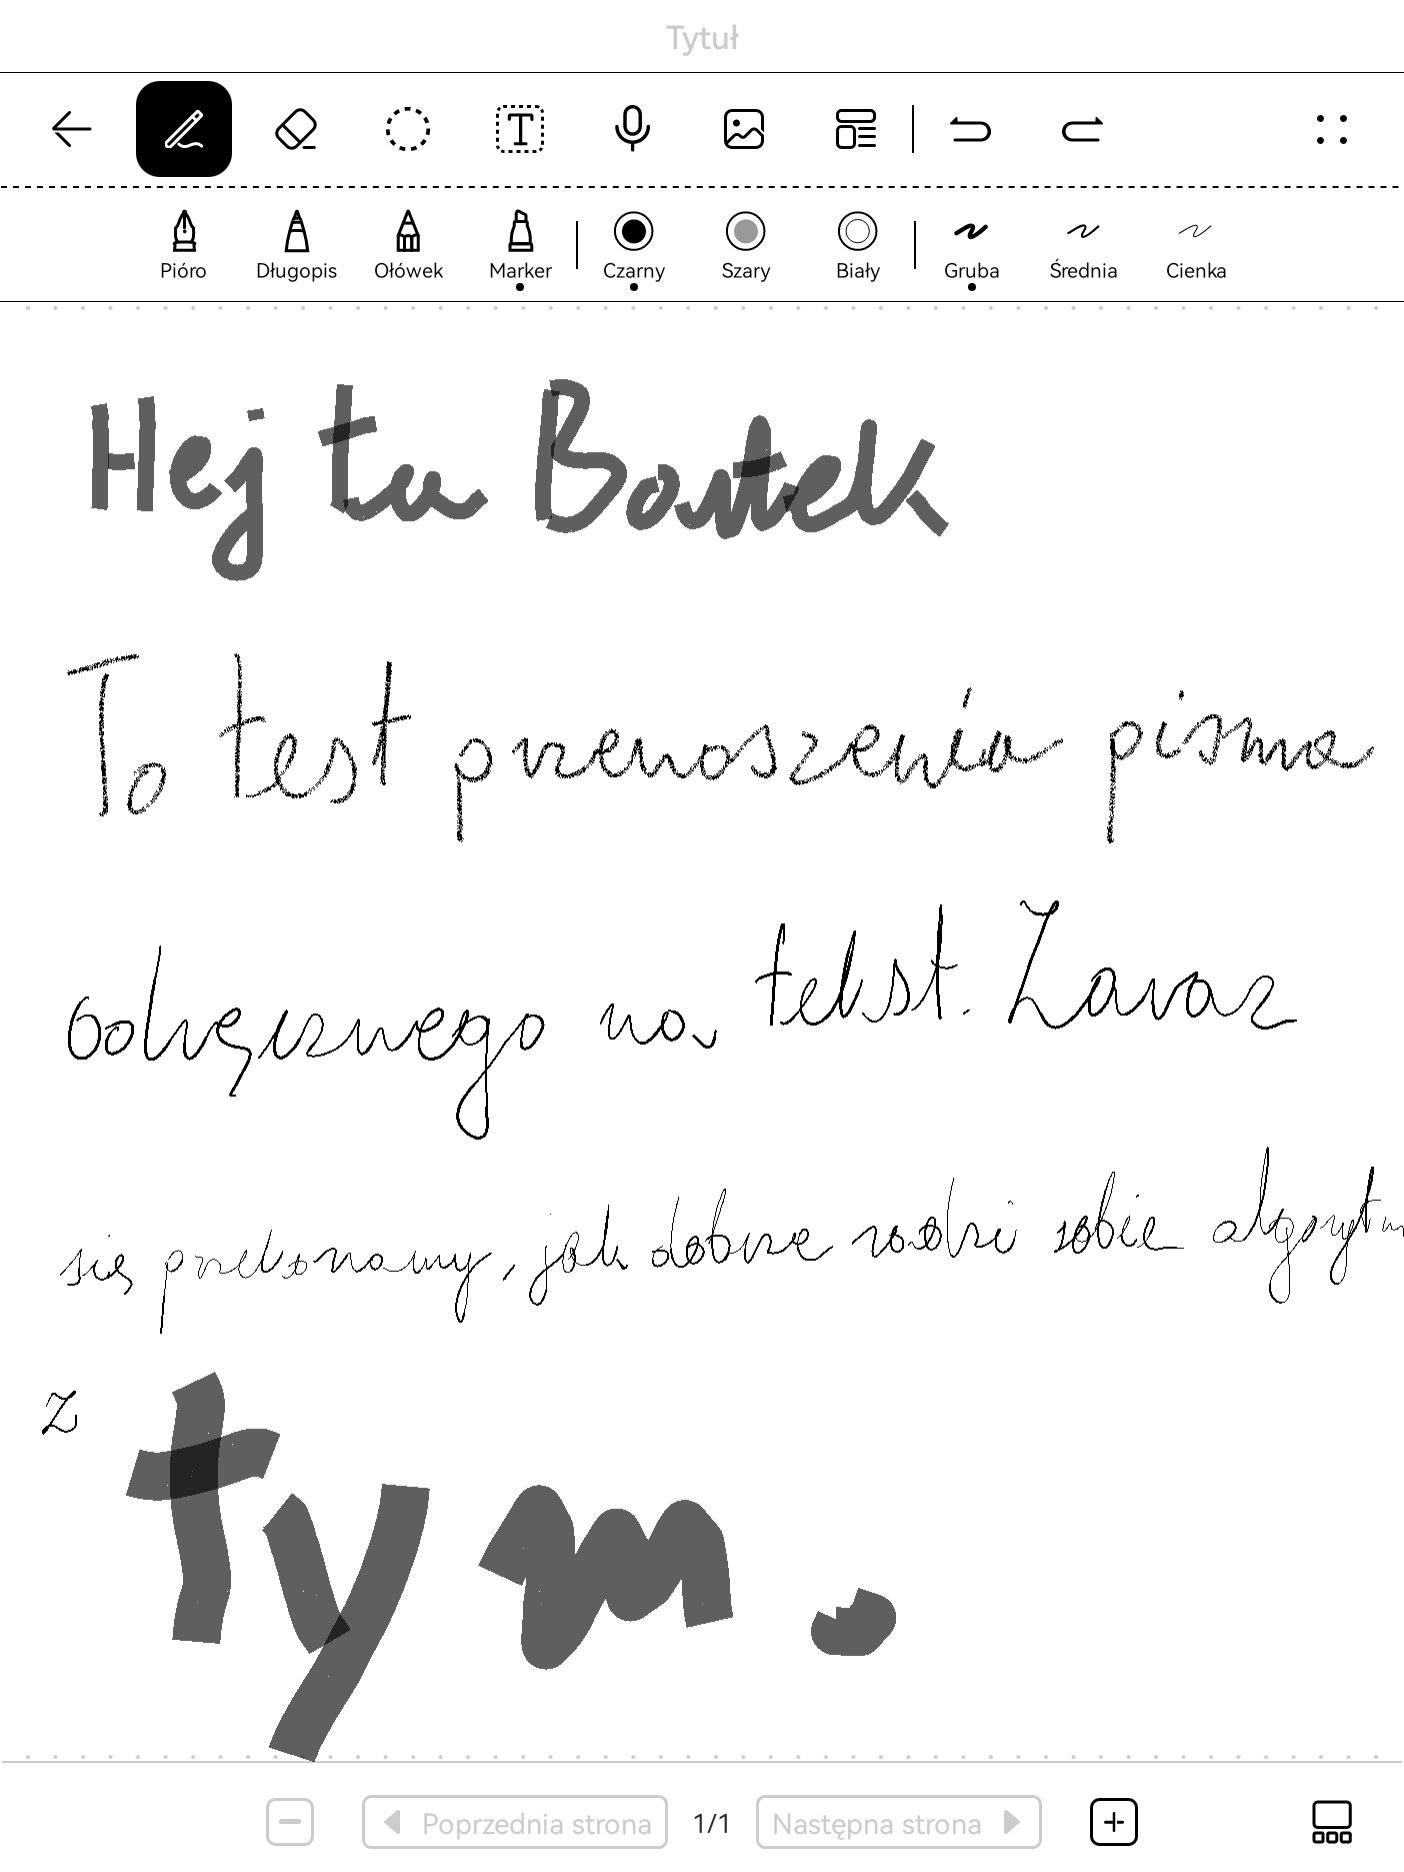 Tytuł
Pióro Długopis Ołówek Marker Czarny Szary Biały Gruba Średnia Cienka
Hej tu Bartek
To test przenoszenia pisma
odręcznego na tekst. Zaraz
się przekonamy, jak dobrze radzi sobie algorytm
z tym.
Poprzednia strona 1/1 Następna strona